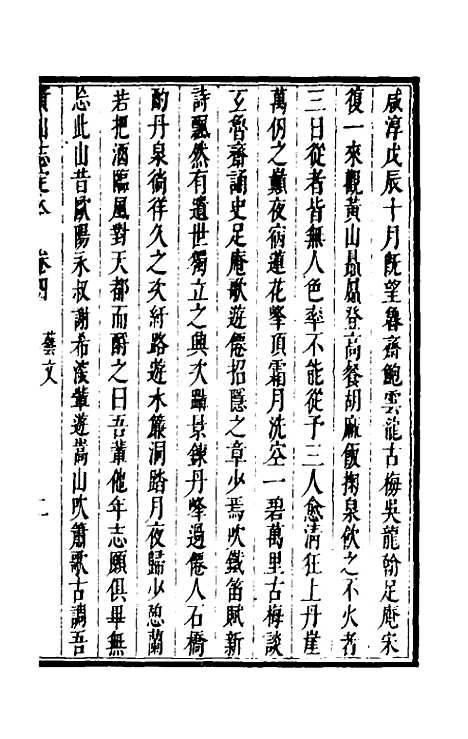 咸淳戊辰十月既望魯齋鮑雲龍古梅吳龍翰足庵宋
復一來觀黃山𧿇𧿇登高餐胡麻飯掬泉飲之不火者
三日從者皆無人色率不能從予三人愈清狂上丹崖
萬仞之巔夜宿蓮花峯頂霜月洗空一碧萬里古梅談
玄魯齋誦史足庵歌遊僊招隱之章少焉吹鐵笛賦新
詩飄然有遺世獨立之興次躡景鍊丹峰過僊人石橋
酌丹泉徜徉久之次紆路遊水簾洞踏月夜歸少憩蘭
若把酒臨風對天都而酹之曰吾輩他年志願俱畢無
忘此山昔歐陽永叔謝希深輩遊嵩山吹簫歌古調吾
黃山志定本 卷四 藝文 二